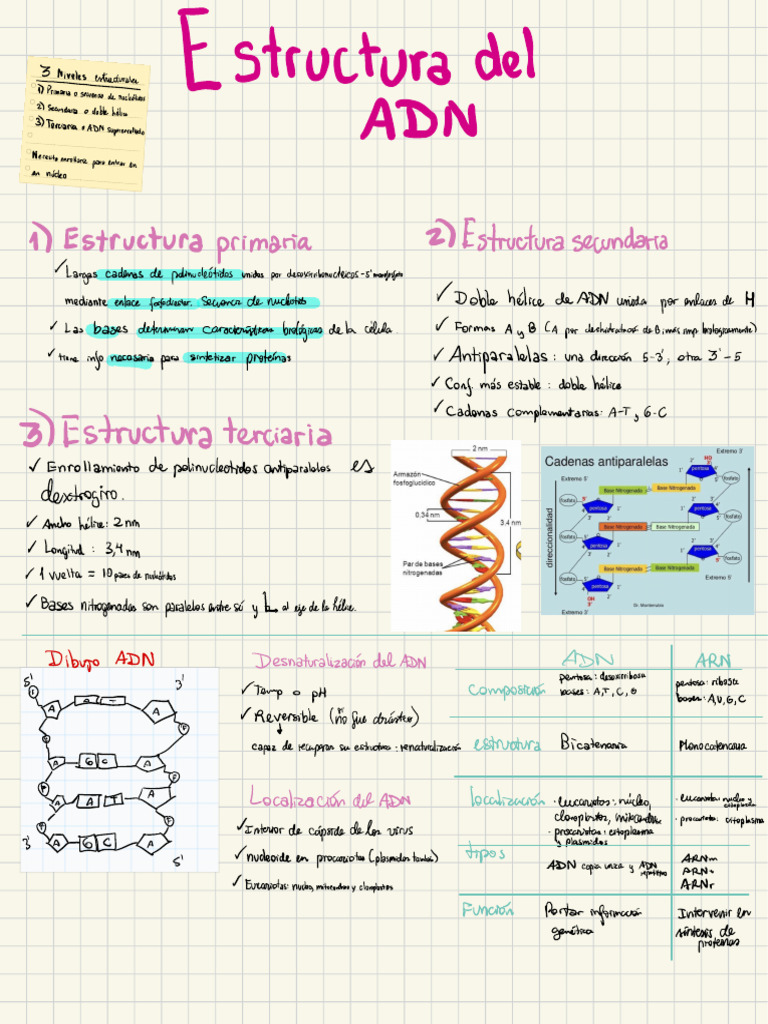 Estructura del
ADN
3 Niveles estructurales
1) Primaria o secuencia de nucleótidos
2) Secundaria o doble hélice
3) Terciaria o ADN superenrollado
Necesita enrollarse para entrar en
en núcleo
1) Estructura primaria
✓ Largas cadenas de polinucleótidos unidos por
mediante enlace fosfodiester. Secuencia de nucleótidos
✓ Las bases determinan características biológicas de la célula.
✓ tiene info necesaria para sintetizar proteínas
2) Estructura secundaria
✓ Doble hélice de ADN unida por enlaces de H
✓ Formas A y B (A por deshidratación de B; más imp. biologicamente)
✓ Antiparalelas : una dirección 5-3', otra 3'-5
✓ Conf. más estable : doble hélice
✓ Cadenas complementarias: A-T, G-C
3) Estructura terciaria
✓ Enrollamiento de polinucleótidos antiparalelos es
dextrogiro.
✓ Ancho hélice: 2 nm
✓ Longitud : 3,4 nm
✓ 1 vuelta = 10 pares de nucleótidos
✓ Bases nitrogenadas son paralelas entre sí y al eje de la hélice.
2 nm
Armazón
fosfoglucídico
0,34 nm
3,4 nm
Par de bases
nitrogenadas
Cadenas antiparalelas
Extremo 3'
Extremo 5'
direccionalidad
HO
3'
pentosa
fosfato
Base Nitrogenada Base Nitrogenada
fosfato
pentosa
pentosa
fosfato
Base Nitrogenada Base Nitrogenada
fosfato
pentosa
pentosa
fosfato
Base Nitrogenada Base Nitrogenada
fosfato
pentosa
OH
3'
Extremo 5'
Extremo 3'
Dr. Montenebio
Dibujo ADN
5' 3'
A A T A
A G C A
A A T A
A G C A
3' 5'
Desnaturalización del ADN
✓ Temp o pH
✓ Reversible (si no fue drástica)
capaz de recuperar su estructura: renaturalización
Localización del ADN
✓ Interior de cápside de los virus
✓ nucleoide en procariotas (plasmidos también)
✓ Eucariotas: nucleo, mitocondrias y cloroplastos
ADN ARN
composición
pentosa: desoxirribosa
bases: A, T, C, G
pentosa: ribosa
bases: A, U, G, C
estructura Bicatenaria Monocatenaria
localización
· eucariotas: núcleo,
cloroplastos, mitocondrias
· procariotas: citoplasma
y plasmidos
· eucariota: nucleo y
citoplasma
· procariota: citoplasma
tipos
ADN copia unica y ADN
repetitivo
ARNm
ARNt
ARNr
Función
Portar información
genética
Intervenir en
síntesis de
proteinas